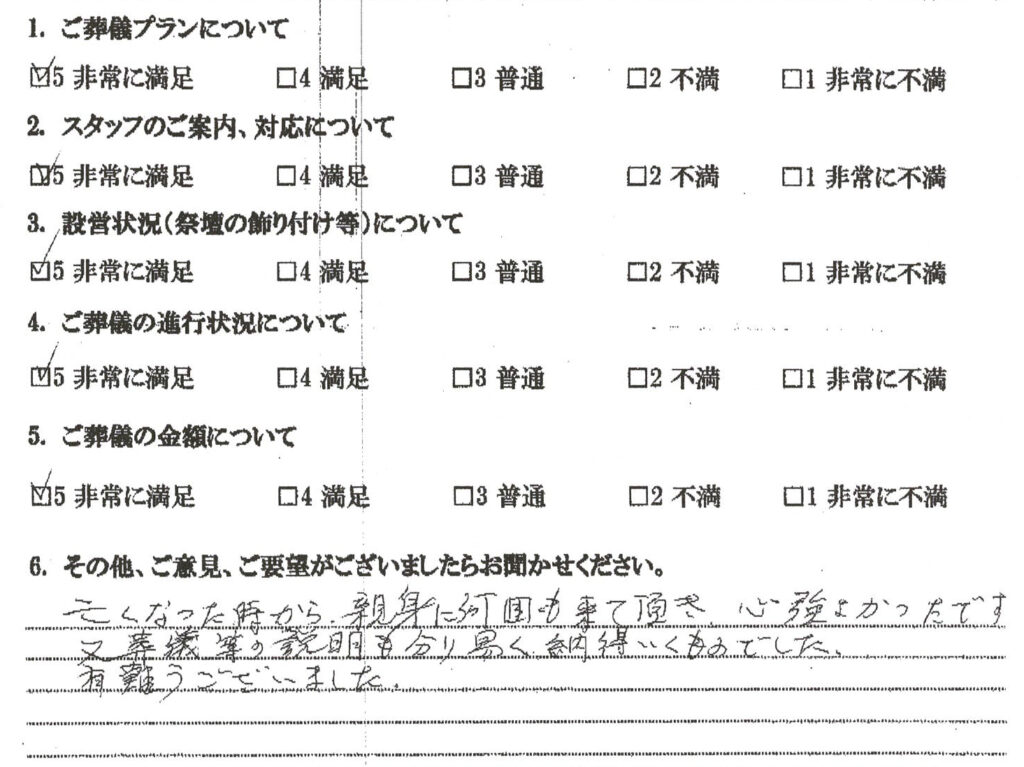 1. ご葬儀プランについて
☑5 非常に満足 □4 満足 □3 普通 □2 不満 □1 非常に不満
2. スタッフのご案内、対応について
☑5 非常に満足 □4 満足 □3 普通 □2 不満 □1 非常に不満
3. 設営状況(祭壇の飾り付け等)について
☑5 非常に満足 □4 満足 □3 普通 □2 不満 □1 非常に不満
4. ご葬儀の進行状況について
☑5 非常に満足 □4 満足 □3 普通 □2 不満 □1 非常に不満
5. ご葬儀の金額について
☑5 非常に満足 □4 満足 □3 普通 □2 不満 □1 非常に不満
6. その他、ご意見、ご要望がございましたらお聞かせください。
亡くなった時から、親身に何回も来て頂き、心強よかったです
又葬儀等の説明も分り易く、納得いくものでした、
有難うございました、